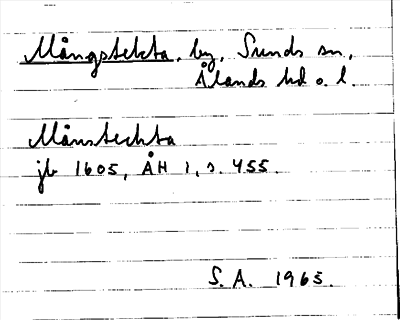 Mångstekta, by, Sunds sn,
Ålands hd o. l.
Månsteckta
jb 1605, ÅH 1, s. 455.
S. A. 1965.